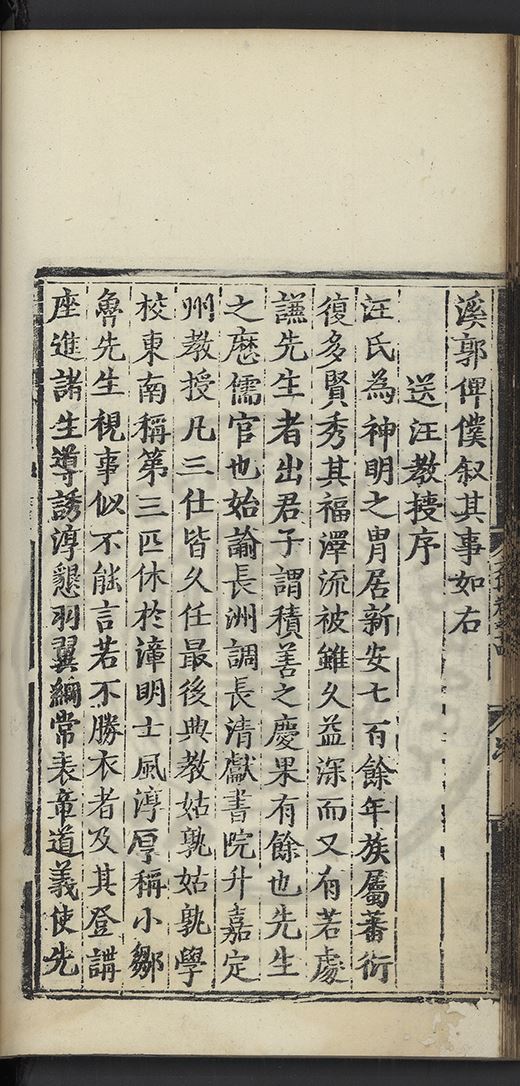 溪郭俾僕叙其事如右
送汪教授序
汪氏為神明之胄居新安七百餘年族屬蕃衍
復多賢秀其福澤流被雖久益深而又有若處
謙先生者出君子謂積善之慶果有餘也先生
之厯儒官也始諭長洲調長清獻書院升嘉定
州教授凡三仕皆久任最後典教姑孰姑孰學
校東南稱第三匹休於漳明士風淳厚稱小鄒
魯先生視事似不能言若不勝衣者及其登講
座進諸生導誘淳懇羽翼綱常表章道義使先